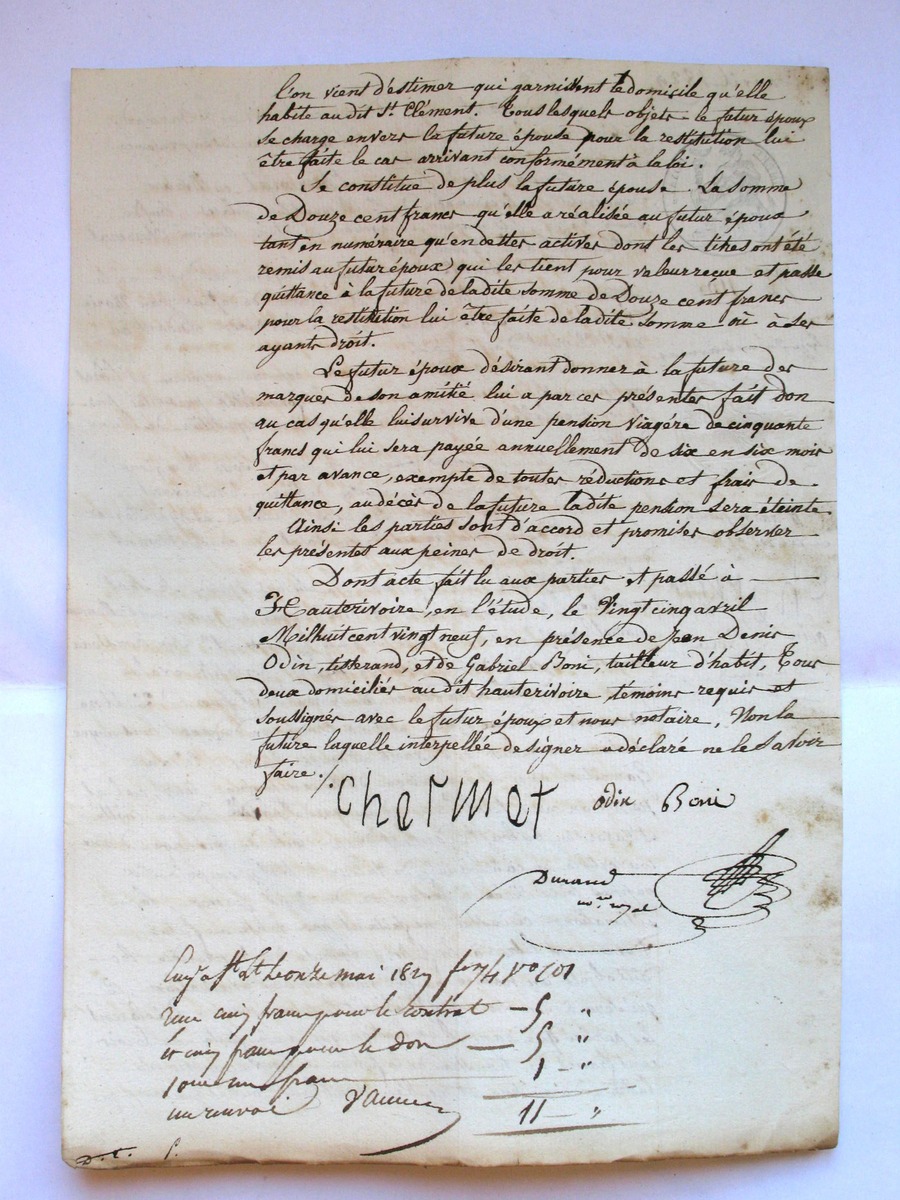 l'on vient d'estimer qui garnissent le domicile qu'elle
habite au dit St. Clément. Tous lesquels objets le futur époux
se charge envers la future épouse pour la restitution lui
être faite le cas arrivant conformément à la loi.
Se constitue de plus la future épouse La somme
de Douze cent francs qu'elle a réalisée au futur époux
tant en numéraire qu'en dettes actives dont les titres ont été
remis au futur époux qui les tient pour valeur reçue et passe
quittance à la future de la dite somme de Douze cent francs
pour la restitution lui être faite de la dite somme où à ses
ayants droit.
Le futur époux désirant donner à la future des
marques de son amitié lui a par ces présentes fait don
au cas qu'elle lui survive d'une pension viagére de cinquante
francs qui lui sera payée annuellement de six en six mois
et par avance, exempte de toutes réductions et frais de
quittance, au décès de la future la dite pension sera éteinte
Ainsi les parties sont d'accord et promises observer
les présentes aux peines de droit.
Dont acte fait lu aux parties et passé à
Hauterivoire, en l'étude, le Vingt cinq avril
Mil huit cent vingt neuf, en présence de Jean Denis
Odin, tisserand, et de Gabriel Boni, tailleur d'habit, Tous
deux domiciliés au dit hauterivoire témoins requis et
soussignés avec le futur époux et nous notaire, Non la
future laquelle interpellée de signer a déclaré ne le savoir
faire ./.
Chermet odin Boni
Durand
nre royal
le onze mai 1829 fo 74 Vo
reçu cinq francs pour le contrat — 5 "
et cinq francs pour le don — 5 "
pour un franc 1 — "
un renvoi 11 — "